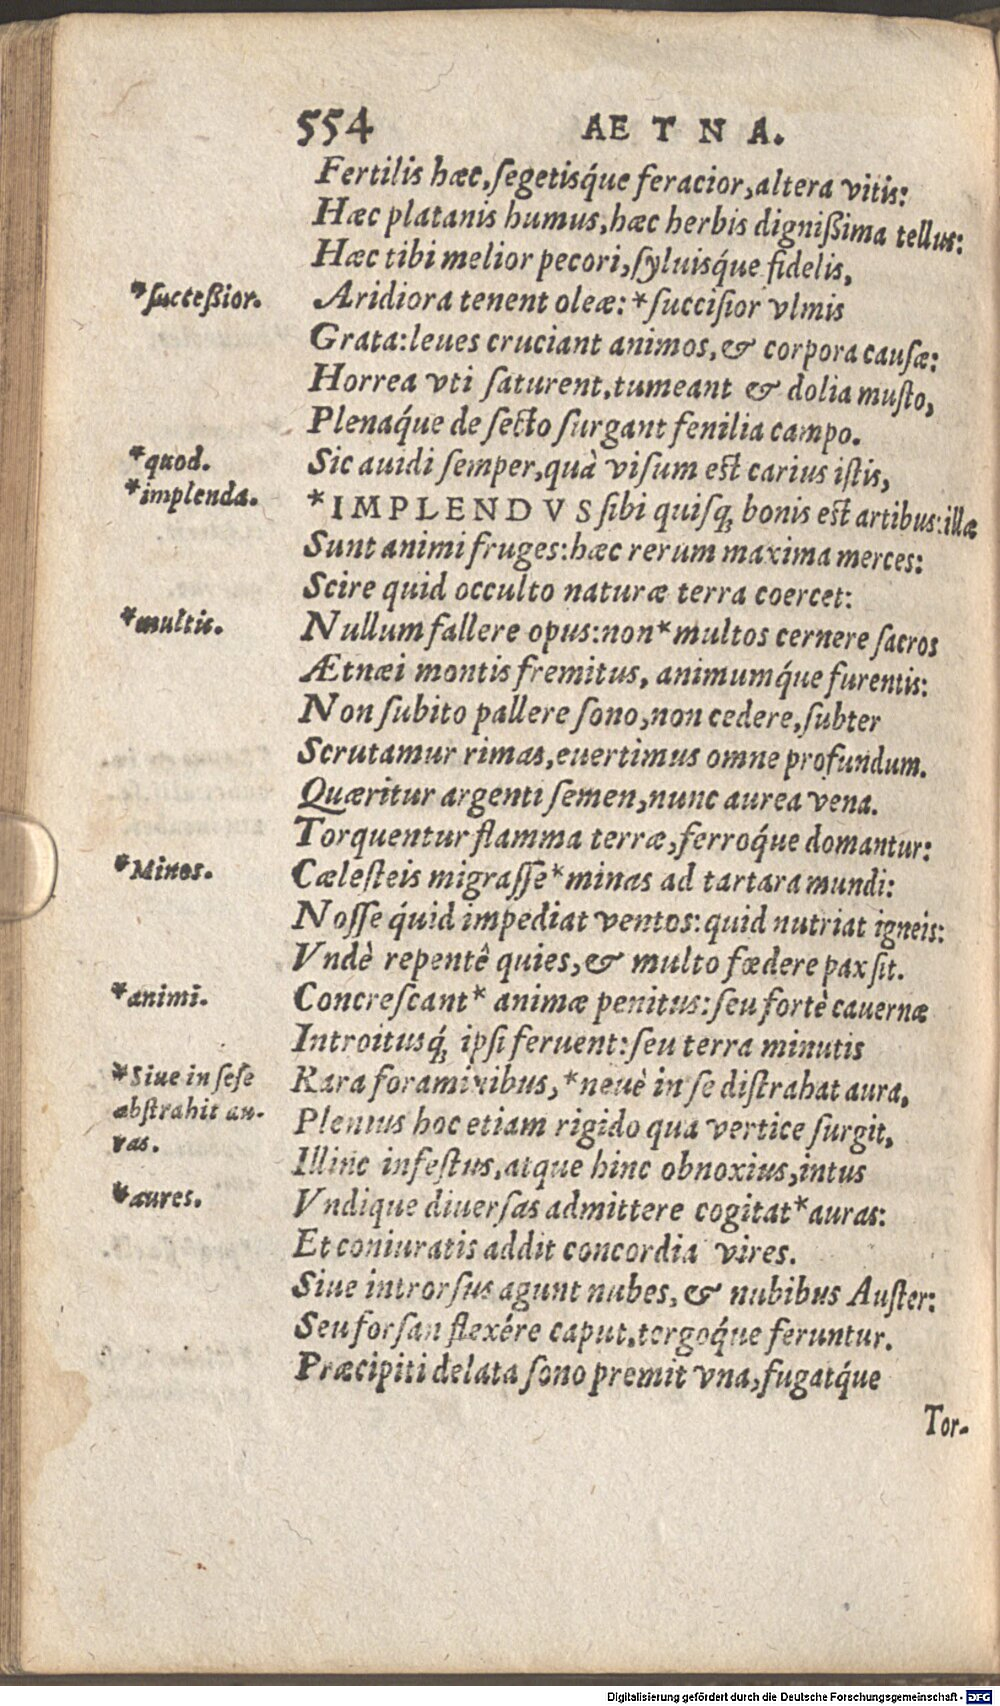 554 AETNA.
Fertilis hæc, ſegetisq́ue feracior, altera vitis:
Hæc platanis humus, hæc herbis dignißima tellus:
Hæc tibi melior pecori, ſyluisq́ue fidelis,
*ſucceßior.
Aridiora tenent oleæ: *ſucciſior vlmis
Grata: leues cruciant animos, & corpora cauſæ:
Horrea vti ſaturent, tumeant & dolia muſto,
Plenaq́ue de ſecto ſurgant fenilia campo.
*quod.
Sic auidi ſemper, quà viſum eſt carius iſtis,
*implenda.
*IMPLENDVS ſibi quiſq; bonis eſt artibus: illæ
Sunt animi fruges: hæc rerum maxima merces:
Scire quid occulto naturæ terra coercet:
*multis.
Nullum fallere opus: non *multos cernere ſacros
Ætnæi montis fremitus, animumq́ue furentis:
Non ſubito pallere ſono, non cedere, ſubter
Scrutamur rimas, euertimus omne profundum.
Quæritur argenti ſemen, nunc aurea vena.
Torquentur flamma terræ, ferroq́ue domantur:
*Minos.
Cæleſteis migraſſe *minas ad tartara mundi:
Noſſe q́uid impediat ventos: quid nutriat igneis:
Vndè repentê quies, & multo fœdere pax ſit.
*animi.
Concreſcant* animæ penitus: ſeu fortè cauernæ
Introitusq́; ipſi feruent: ſeu terra minutis
*Siue in ſeſe
abſtrahit au-
ras.
Rara foraminibus, *neuè in ſe diſtrahat aura,
Plenius hoc etiam rigido qua vertice ſurgit,
Illinc infeſtus, atque hinc obnoxius, intus
*aures.
Vndique diuerſas admittere cogitat *auras:
Et coniuratis addit concordia vires.
Siue introrſus agunt nubes, & nubibus Auſter:
Seu forſan flexére caput, tergoq́ue feruntur.
Præcipiti delata ſono premit vna, fugatq́ue
Tor-
Digitalisierung gefördert durch die Deutsche Forschungsgemeinschaft - DFG